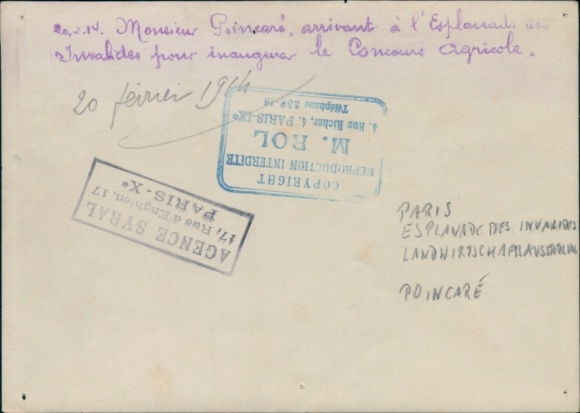 20.2.14. Monsieur Poincaré, arrivant à l'Esplanade des
Invalides pour inaugurer le Concours Agricole.
20 février 1914
COPYRIGHT
REPRODUCTION INTERDITE
M. ROL
4, Rue Richer, 4, PARIS-IXe
Téléphone 259-18
AGENCE SYRAL
17, Rue d'Enghien, 17
PARIS-Xe
PARIS
ESPLANADE DES INVALIDES
LANDWIRTSCHAFTSAUSSTELLUNG
POINCARÉ